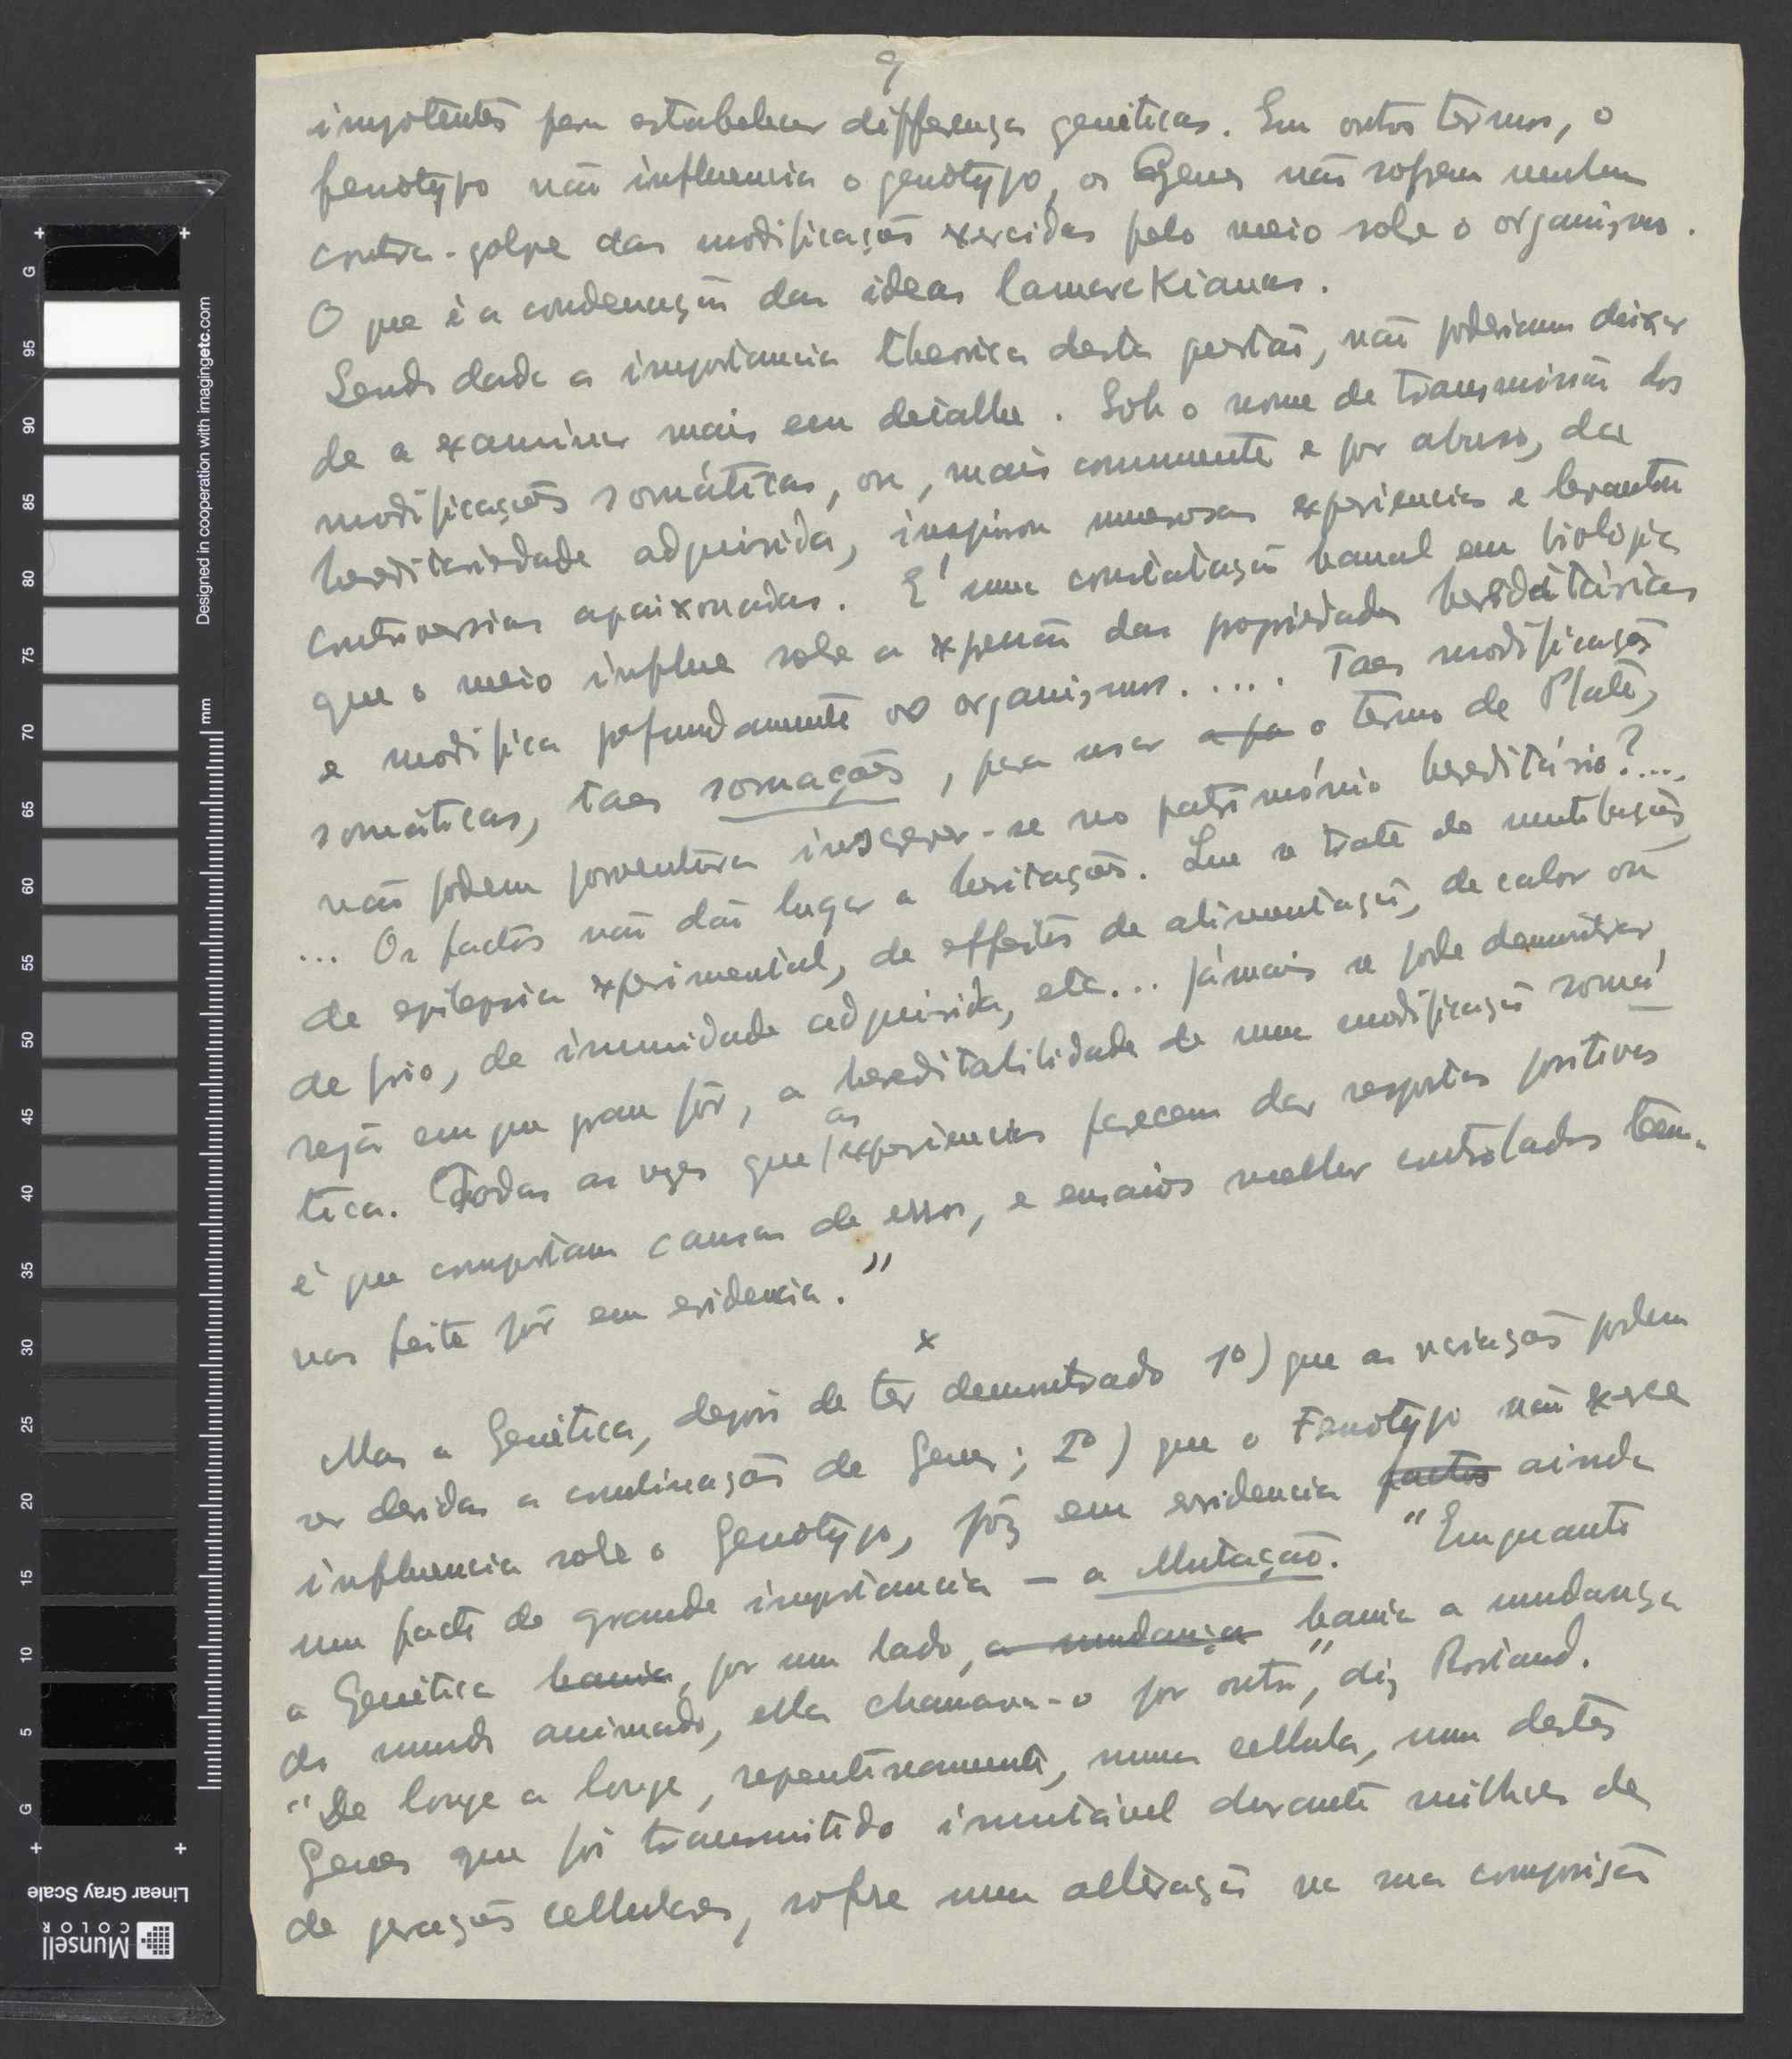 9
impotentes para estabelecer differenças geneticas. Em outros termos, o
fenotypo não influencia o genotypo, os Genes não sofrem nenhum
contra-golpe das modificações exercidas pelo meio sobre o organismo.
O que é a condenação das ideas lamarckianas.
Sendo dada a importancia theorica desta questão, não poderiamos deixar
de a examinar mais em detalhe. Sob o nome de transmissão dos
modificações somáticas, ou, mais communmente e por abuso, da
hereditariedade adquirida, inspirou numerosas experiencias e levantou
controversias apaixonadas. E' uma constatação banal em biologia
que o meio influe sobre a expressão das propriedades hereditárias
e modifica profundamente os organismos..... Taes modificações
somáticas, taes somações, para usar o termo de Plate,
não podem porventura inscrever-se no património hereditário?....
... Os factos não dão lugar a hesitações. Que se trate de mutilações,
de epilepsia experimental, de effeitos de alimentação, de calor ou
de frio, de immunidade adquirida, etc... jámais se pode demonstrar,
seja em que grau fôr, a hereditabilidade de uma modificação somá
tica. Todas as vezes que as experiencias parecem dar respostas positivas
é que comportam causas de error, e ensaios melhor controlados tem-
nas feito pôr em evidencia."
x
Mas a Genética, depois de ter demonstrado 1º) que as variações podem
ser devidas a combinações de Genes; 2º) que o Fenotypo não exerce
influencia sobre o Genotypo, pôz em evidencia factos ainda
um facto de grande importancia - a Mutação. "Emquanto
a Genética bania, por um lado, a mudança bania a mudança
do mundo animado, ella chamava-o por outro", diz Rostand.
"De longe a longe, repentinamente, numa cellula, um destes
Genes que foi transmitido imutável durante milhares de
de gerações cellulares, sofre uma alteração na sua composição
Designed in cooperation with imagingetc.com
mm
G
95
90
85
80
75
70
65
60
55
50
45
40
35
30
25
20
15
10
5
G
Linear Gray Scale
Munsell
COLOR